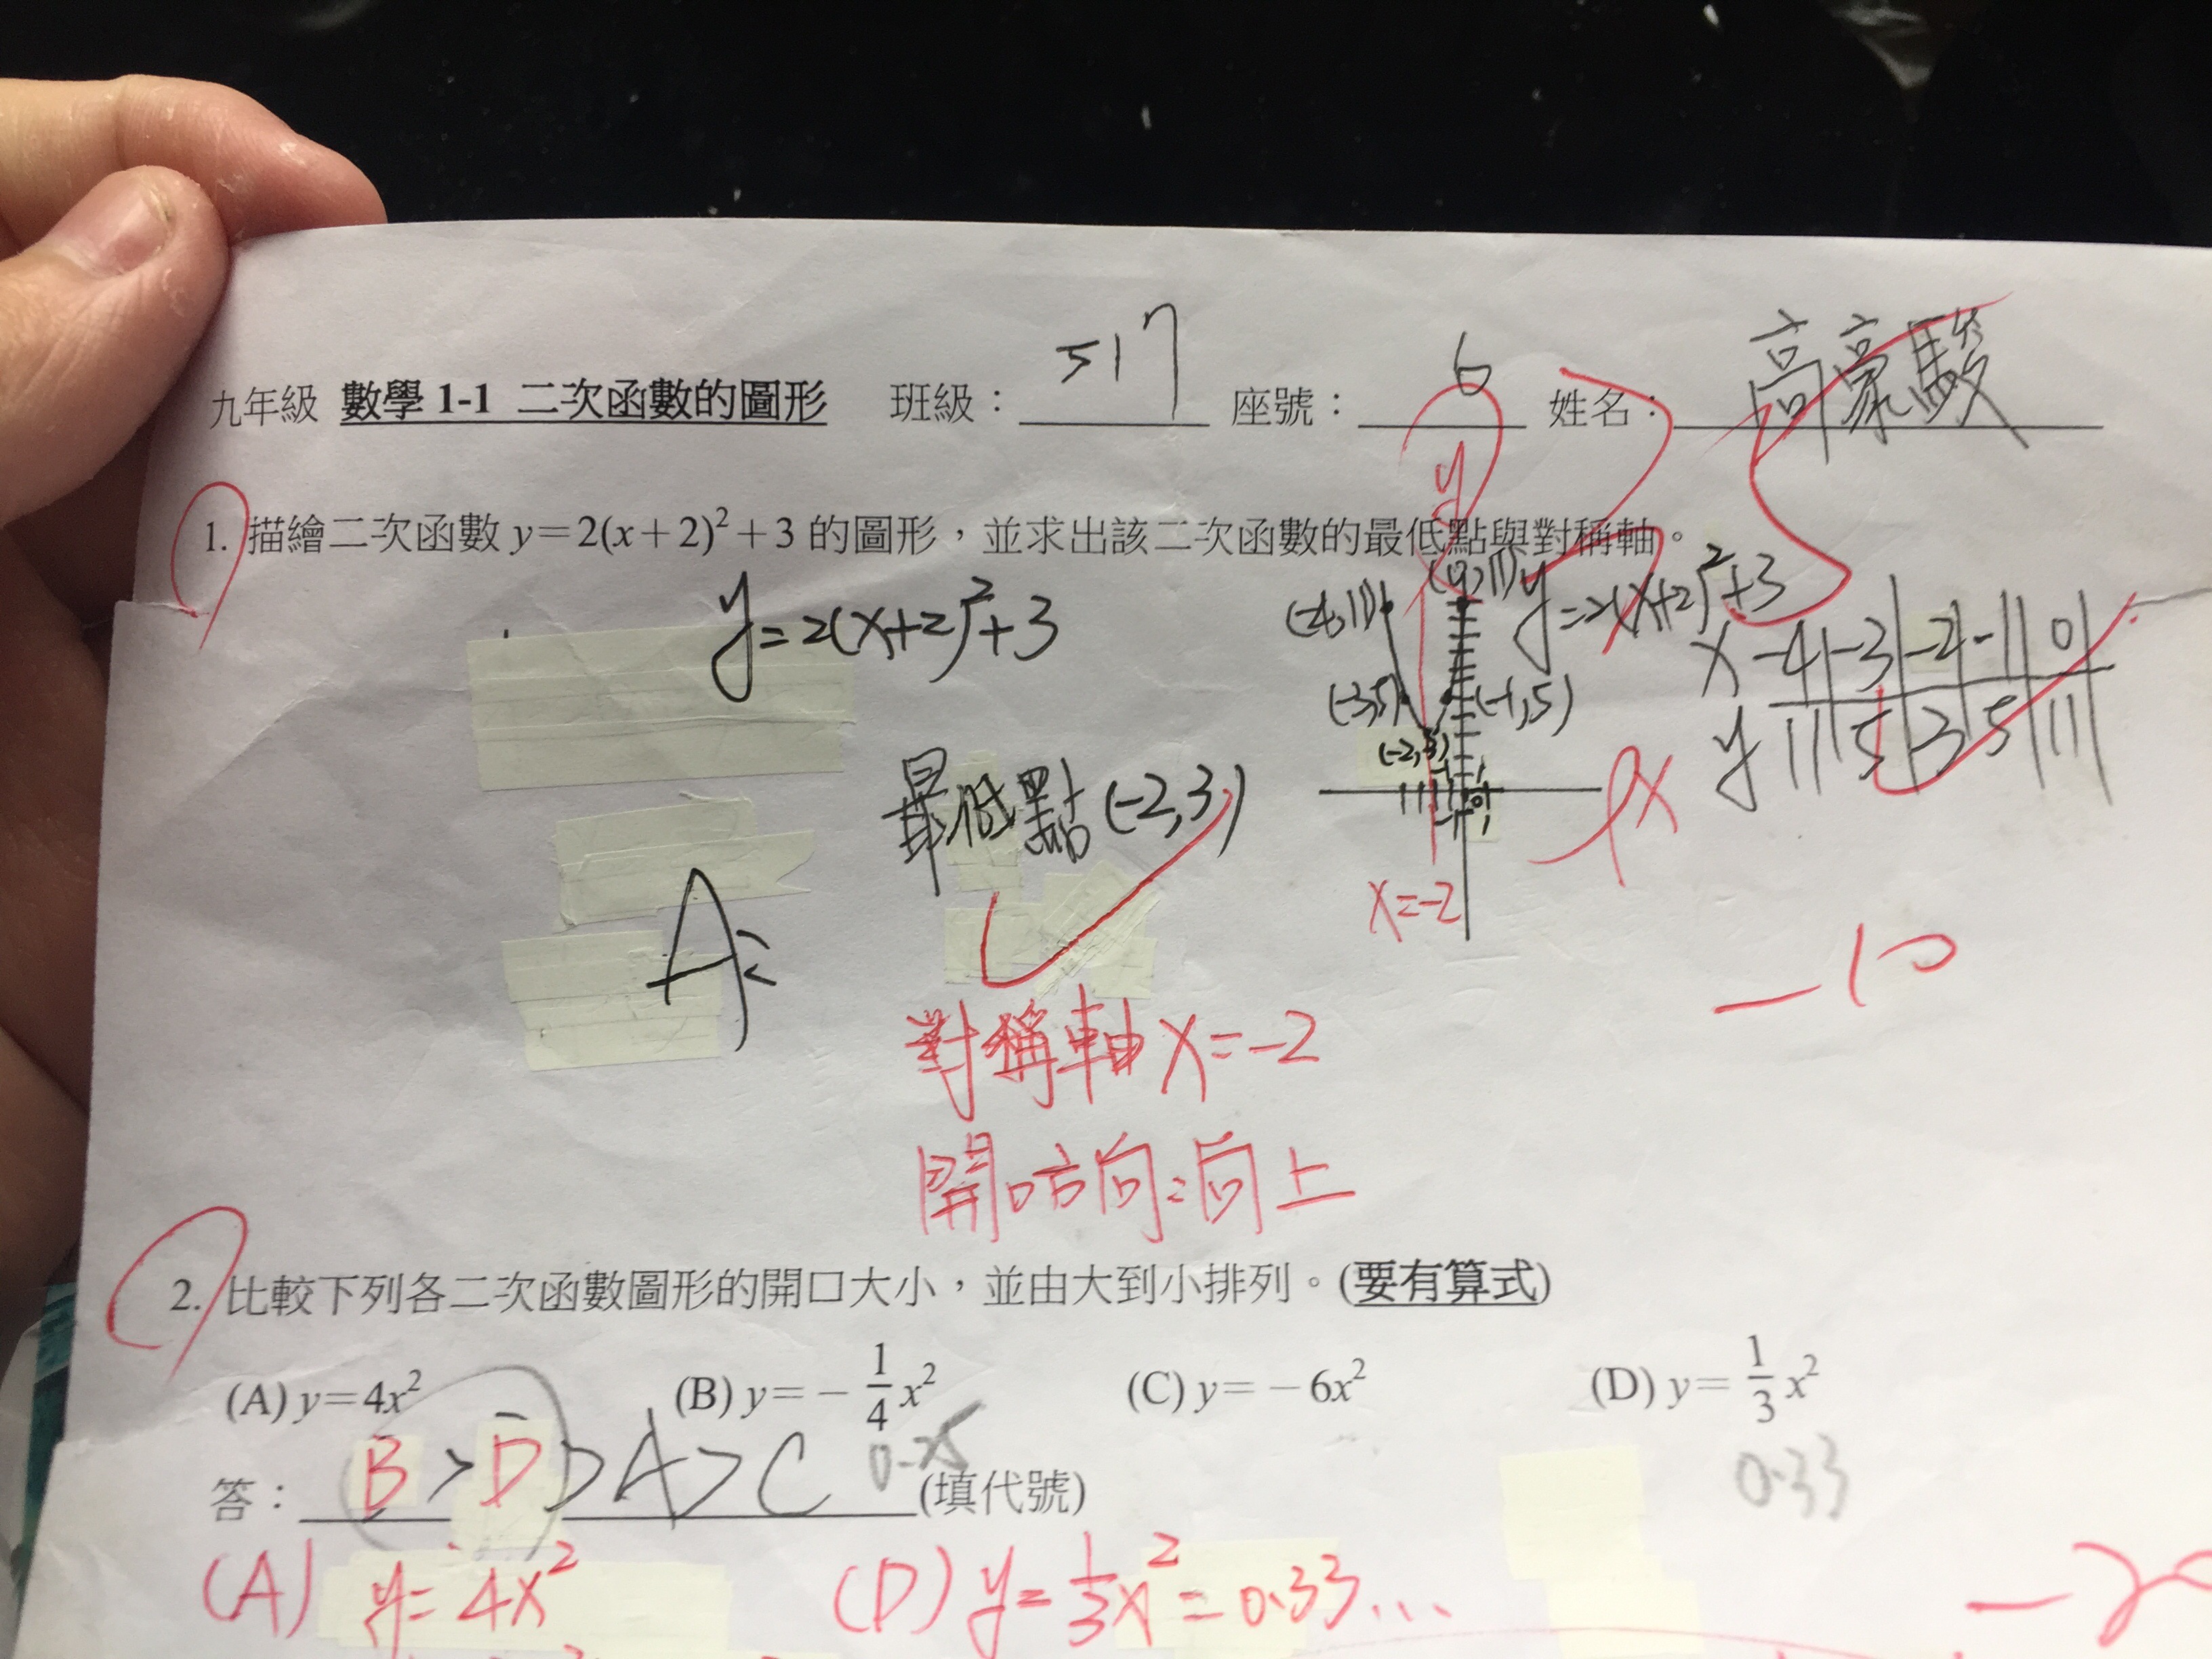 九年級 數學 1-1 二次函數的圖形 班級：517 座號：6 姓名：高豪駿
1. 描繪二次函數 y=2(x+2)²+3 的圖形，並求出該二次函數的最低點與對稱軸。
y=2(x+2)²+3
y
(-4,11) (0,11) y=2(x+2)²+3
x -4 -3 -2 -1 0
y 11 5 3 5 11
(-3,5) (-1,5)
(-2,3)
x
最低點(-2,3)
x=-2
A:
-10
對稱軸 x=-2
開口方向:向上
2. 比較下列各二次函數圖形的開口大小，並由大到小排列。(要有算式)
(A) y=4x² (B) y=-1/4x² (C) y=-6x² (D) y=1/3x²
0.25 0.33
答：B>D>A>C (填代號)
(A) y=4x² (D) y=1/3x²=0.33...